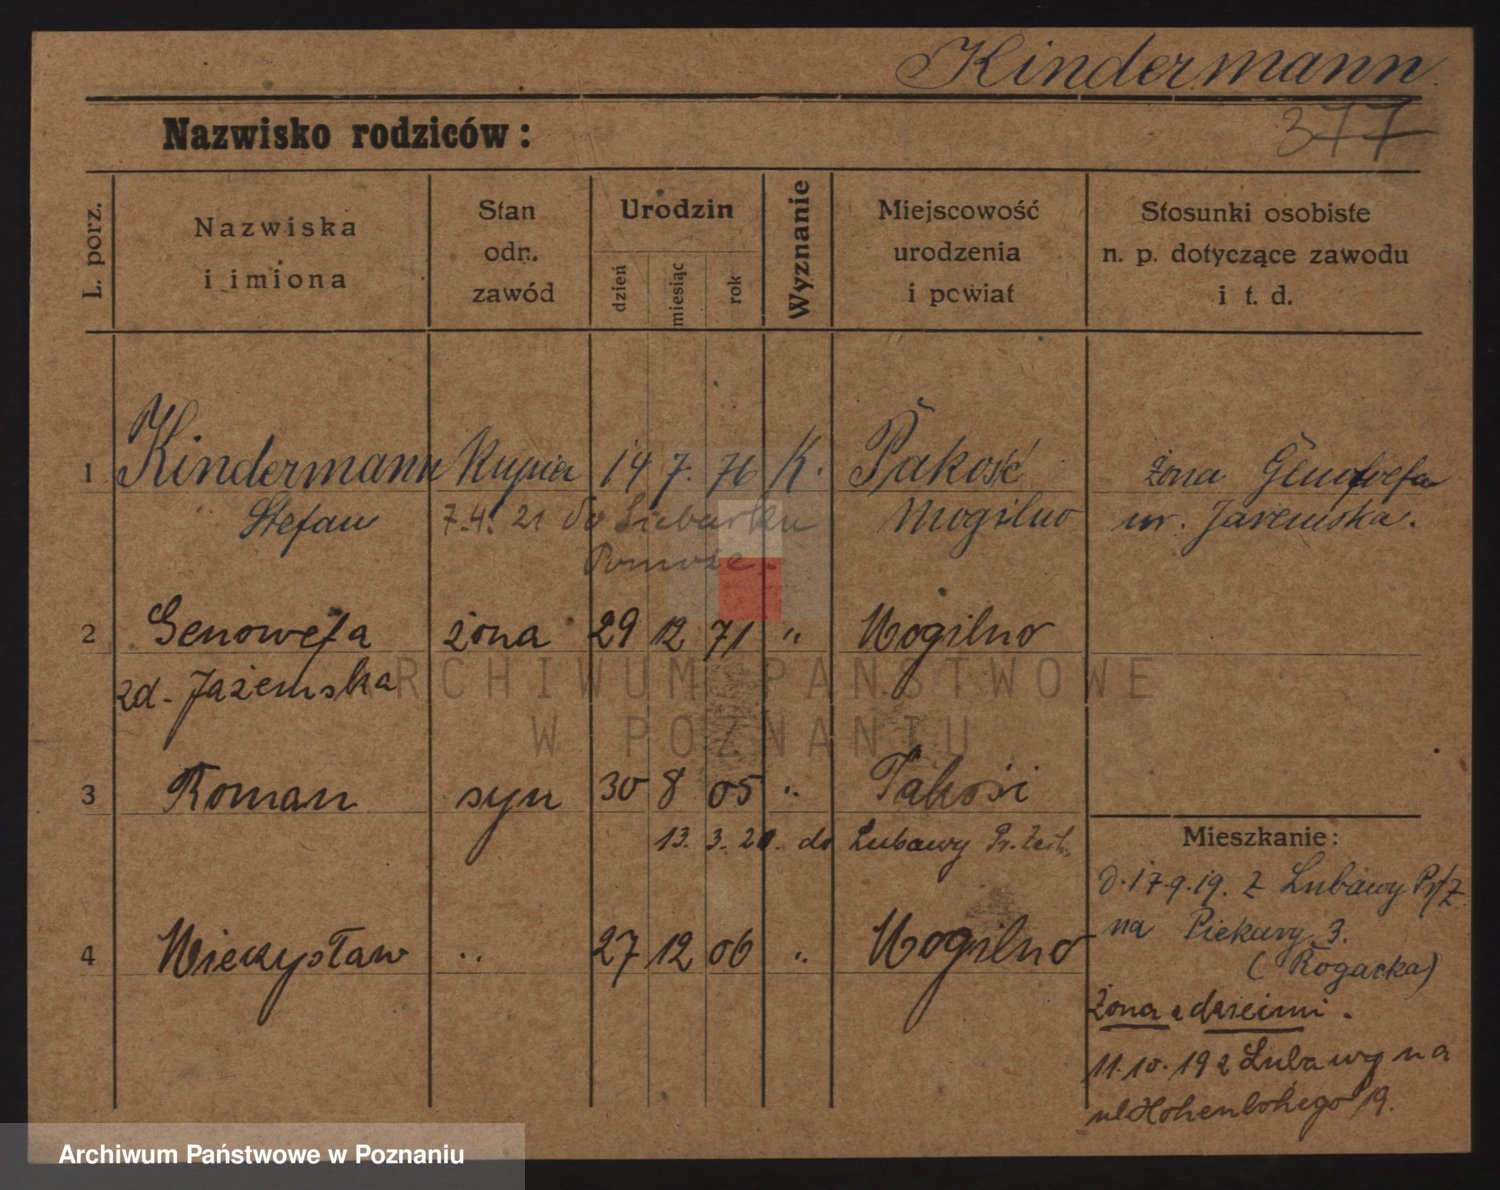 Kindermann
377
Nazwisko rodziców:
L. porz.
Nazwiska
i imiona
Stan
odn.
zawód
Urodzin
dzień
miesiąc
rok
Wyznanie
Miejscowość
urodzenia
i powiat
Stosunki osobiste
n. p. dotyczące zawodu
i t. d.
1 Kindermann Kupiec 14 7. 76 K. Pakość żona Genofwefa
Stefan 7.4. 21 do Mogilno ur. Jaremska.
2 Genowefa żona 29 12 71 " Mogilno
zd. Jażemska
3 Roman syn 30 8 05 " Pakości
13. 3. 20. do Lubawy
4 Mieczysław " 27 12 06 " Mogilno
Mieszkanie:
d. 17.9.19. z Lubawy
na Piekary 3.
(Rogacka)
Żona z dziećmi.
11.10.19 z Lubawy na
ul Hohenlohego 19.
ARCHIWUM PAŃSTWOWE
W POZNANIU
Archiwum Państwowe w Poznaniu